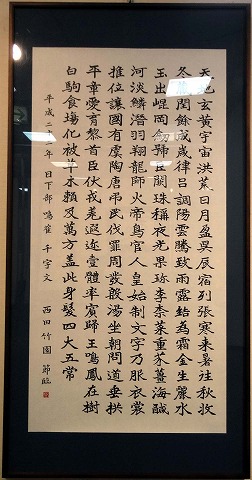 天地玄黄宇宙洪荒日月盈昃辰宿列張寒来暑往秋收
冬蔵閏餘成歳律呂調陽雲騰致雨露結為霜金生麗水
玉出崐岡劔號巨闕珠稱夜光果珍李柰菜重芥薑海鹹
河淡鱗潜羽翔龍師火帝鳥官人皇始制文字乃服衣裳
推位讓國有虞陶唐弔民伐罪周發殷湯坐朝問道垂拱
平章愛育黎首臣伏戎羌遐迩壹體率賓歸王鳴鳳在樹
白駒食場化被草木賴及萬方盖此身髮四大五常
平成二十二年 日下部鳴隺 千字文 西田竹園 節臨